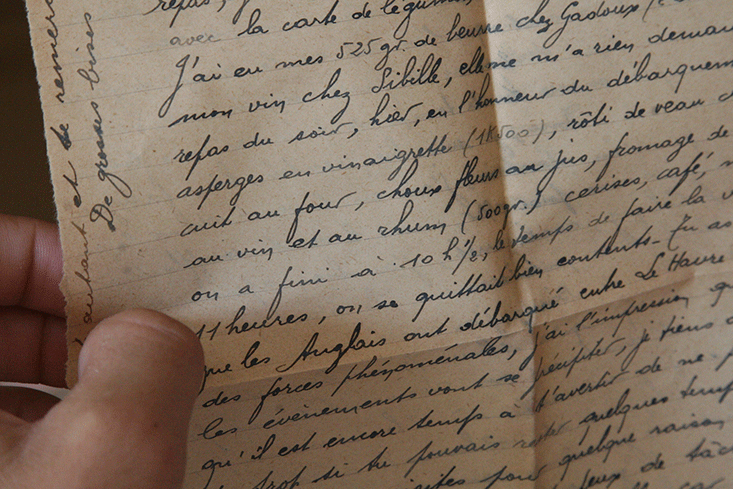 repas, j
avec la carte de légume
J'ai eu mes 525 gr. de beurre chez Gadoux
mon vin chez Sibille, elle ne m'a rien deman
repas du soir, hier, en l'honneur du débarquem
asperges en vinaigrette (1K500), rôti de veau
cuit au four, choux fleurs au jus, fromage de
au vin et au rhum (500gr.) cerises, café,
on a fini à 10 h 1/2, le temps de faire la v
11 heures, on se quittait bien contents - Tu as
que les Anglais ont débarqué entre Le Havre
des forces phénoménales, j'ai l'impression q
les évènements vont se précipiter, je tiens
qu'il est encore temps à t'avertir de ne p
trop si tu pouvais rester quelques temp
pour quelque raison
de tâc
autant et te remer
De grosses bises